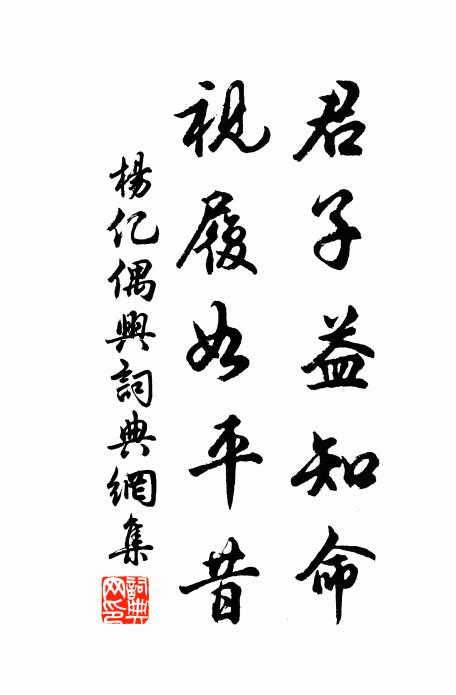 君子益知命
視履如平昔
楊亿偶興詞典網集
詞典網印